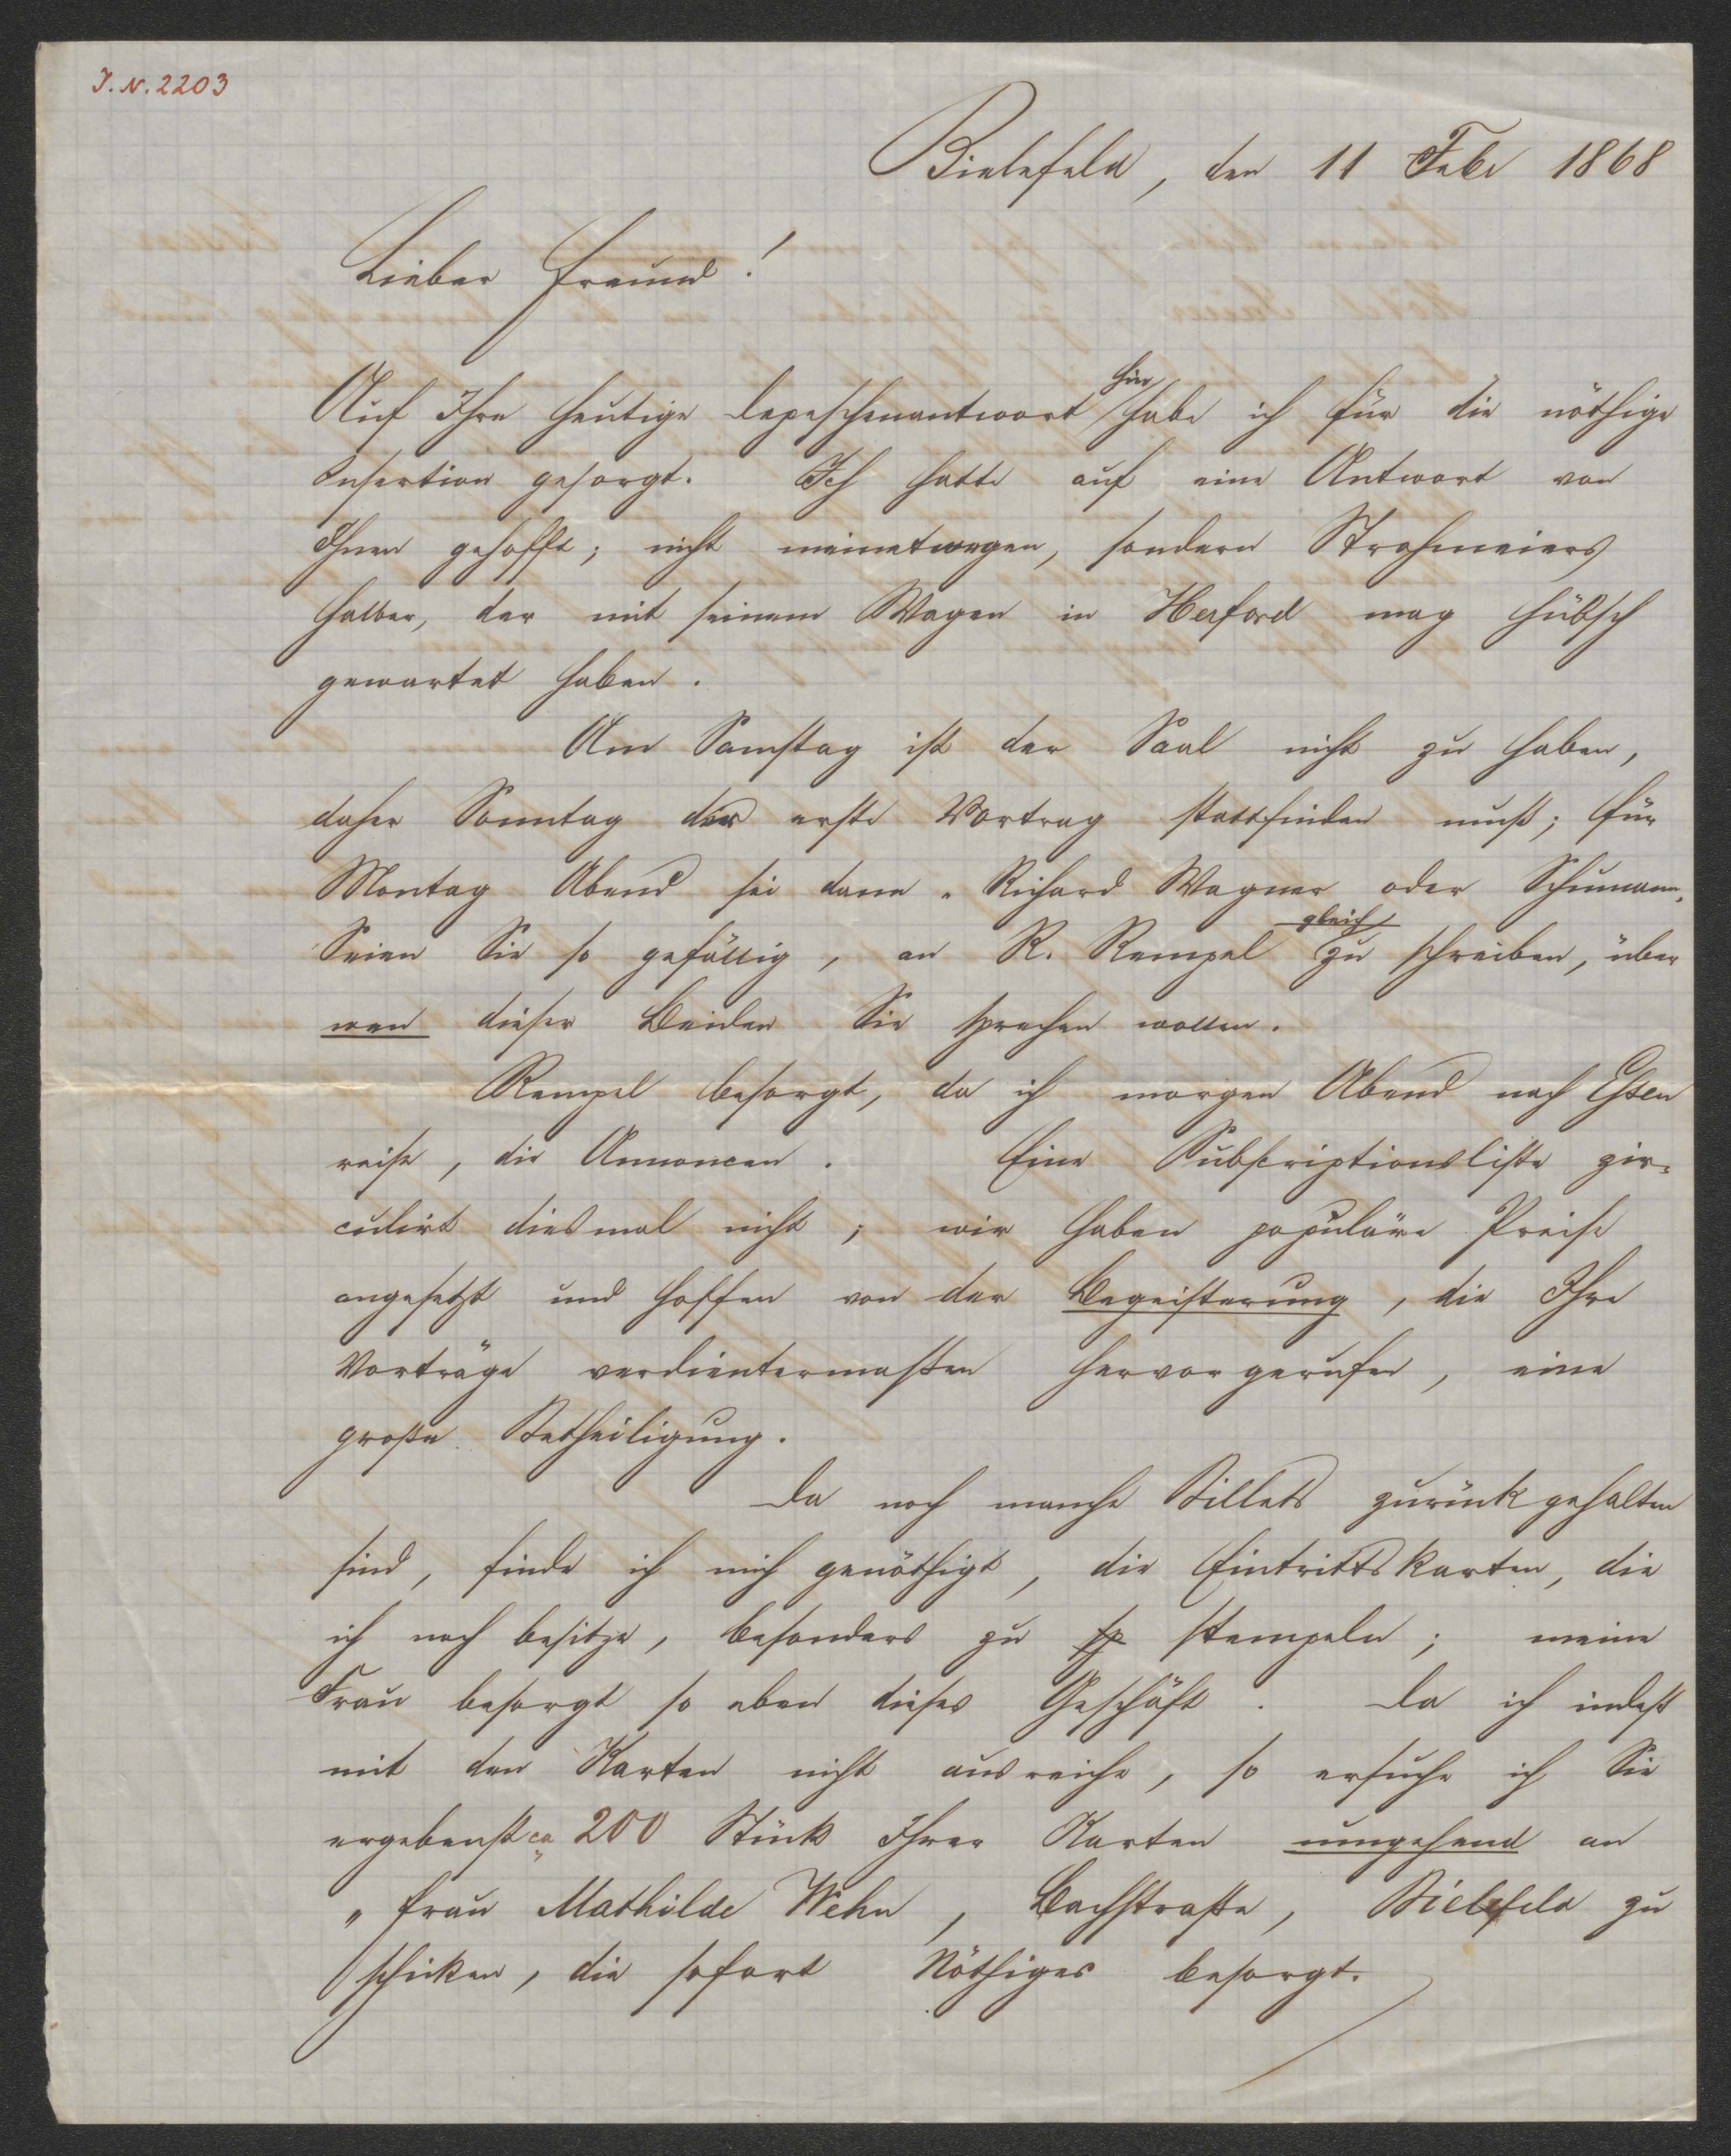 J.N. 2203
Bielefeld, den 11 Febr 1868
Lieber Freund!
hier
Auf Ihre heutige Depeschenantwort habe ich für die nöthige
Insertion gesorgt. Ich hatte auf eine Antwort von
Ihnen gehofft; nicht meinetwegen, sondern Strohmeiers
halber, der mit seinem Wagen in Herford mag hübsch
gewartet haben.
Am Samstag ist der Saal nicht zu haben,
daher Sonntag der erste Vortrag stattfinden muß; für
Montag Abend sei dann „ Richard Wagner oder Schumann.
gleich
Seien Sie so gefällig, an R. Rempel zu schreiben, über
wen dieser Beiden Sie sprechen wollen.
Rempel besorgt, da ich morgen Abend nach Essen
reise, die Annoncen. Eine Subscriptionsliste zir-
culirt diesmal nicht; wir haben populäre Preise
angesetzt und hoffen von der Begeisterung, die Ihre
Vorträge verdientermaßen hervorgerufen, eine
große Betheiligung.
Da noch manche Billets zurückgehalten
sind, finde ich mich genöthigt, die Eintrittskarten, die
ich noch besitze, besonders zu stempeln; meine
Frau besorgt so eben dieses Geschäft. Da ich indeß
mit den Karten nicht ausreiche, so ersuche ich Sie
ergebenst ca 200 Stück Ihrer Karten umgehend an
„ Frau Mathilde Wehn, Bachstraße, Bielefeld zu
schicken, die sofort Nöthiges besorgt.